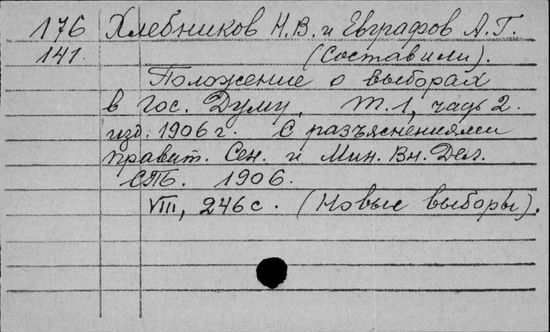 176 Хлебников Н.В. и Евграфов А.Г.
141. (Составили).
Положение о выборах
в Гос. Думу, т. 1, часть 2.
изд. 1906 г. С разъяснениями
правит. Сен. и Мин. Вн. Дел.
СПБ. 1906.
VIII, 246 с. (Новые выборы).